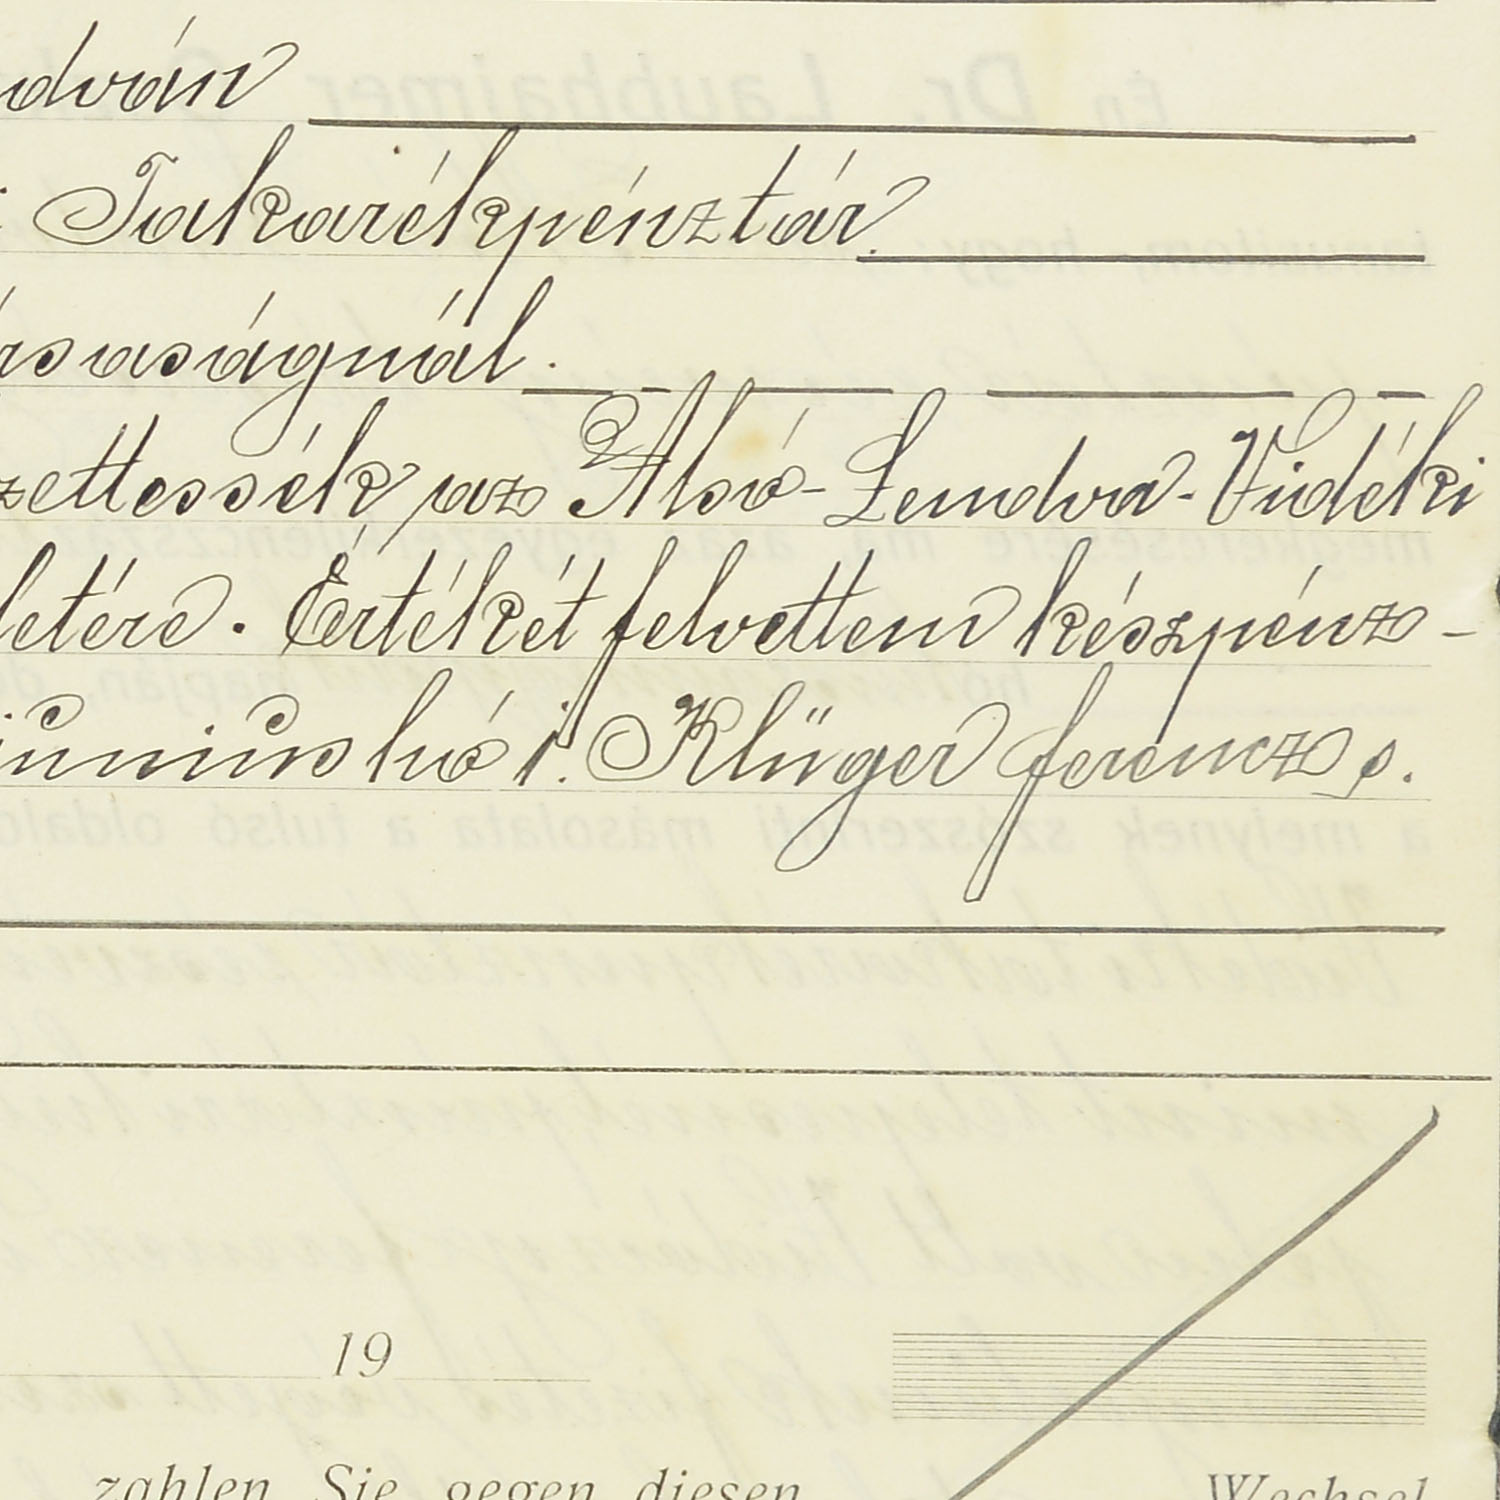 dván
Takarékpénztár.
rsaságnál.
zettessék az Alsó-Lendva-Vidéki
letére. Értékét felvettem készpénz-
június hó 1. Klüger ferencz s.
19
zahlen Sie gegen diesen Wechsel